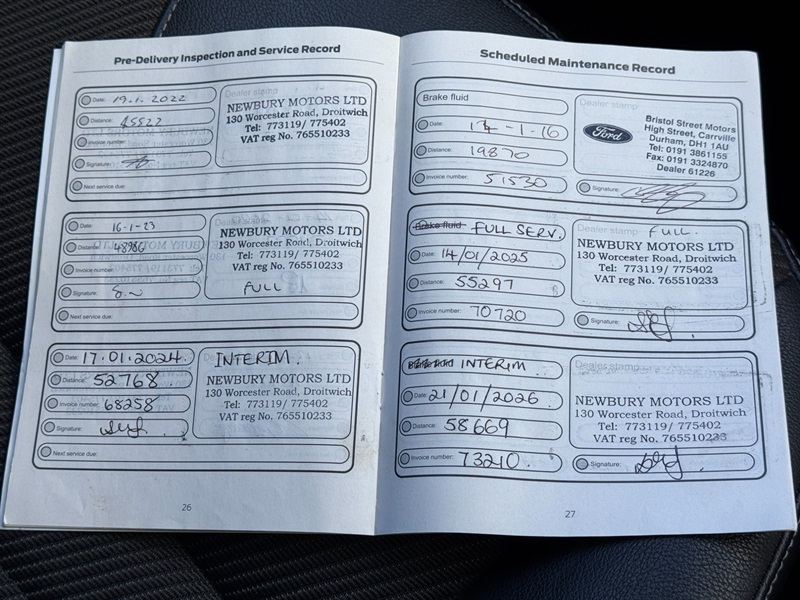 Pre-Delivery Inspection and Service Record
Date: 19.1.2022
Distance: 45527
Invoice number:
Signature:
Next service due:
Dealer stamp
NEWBURY MOTORS LTD
130 Worcester Road, Droitwich
Tel: 773119/ 775402
VAT reg No. 765510233
Date: 16-1-23
Distance: 48986
Invoice number:
Signature:
Next service due:
NEWBURY MOTORS LTD
130 Worcester Road, Droitwich
Tel: 773119/ 775402
VAT reg No. 765510233
FULL
Date: 17.01.2024
Distance: 52768
Invoice number: 68258
Signature:
Next service due:
INTERIM.
NEWBURY MOTORS LTD
130 Worcester Road, Droitwich
Tel: 773119/ 775402
VAT reg No. 765510233
26
Scheduled Maintenance Record
Brake fluid
Date: -1-16
Distance: 19870
Invoice number: 51530
Dealer stamp
Ford
Bristol Street Motors
High Street, Carrville
Durham, DH1 1AU
Tel: 0191 3861155
Fax: 0191 3324870
Dealer 61226
Signature:
Brake fluid FULL SERV.
Date: 14/01/2025
Distance: 55297
Invoice number: 70720
Dealer stamp FULL.
NEWBURY MOTORS LTD
130 Worcester Road, Droitwich
Tel: 773119/ 775402
VAT reg No. 765510233
Signature:
Brake fluid INTERIM
Date: 21/01/2026
Distance: 58669
Invoice number: 73210.
Dealer stamp
NEWBURY MOTORS LTD
130 Worcester Road, Droitwich
Tel: 773119/ 775402
VAT reg No. 765510233
Signature:
27